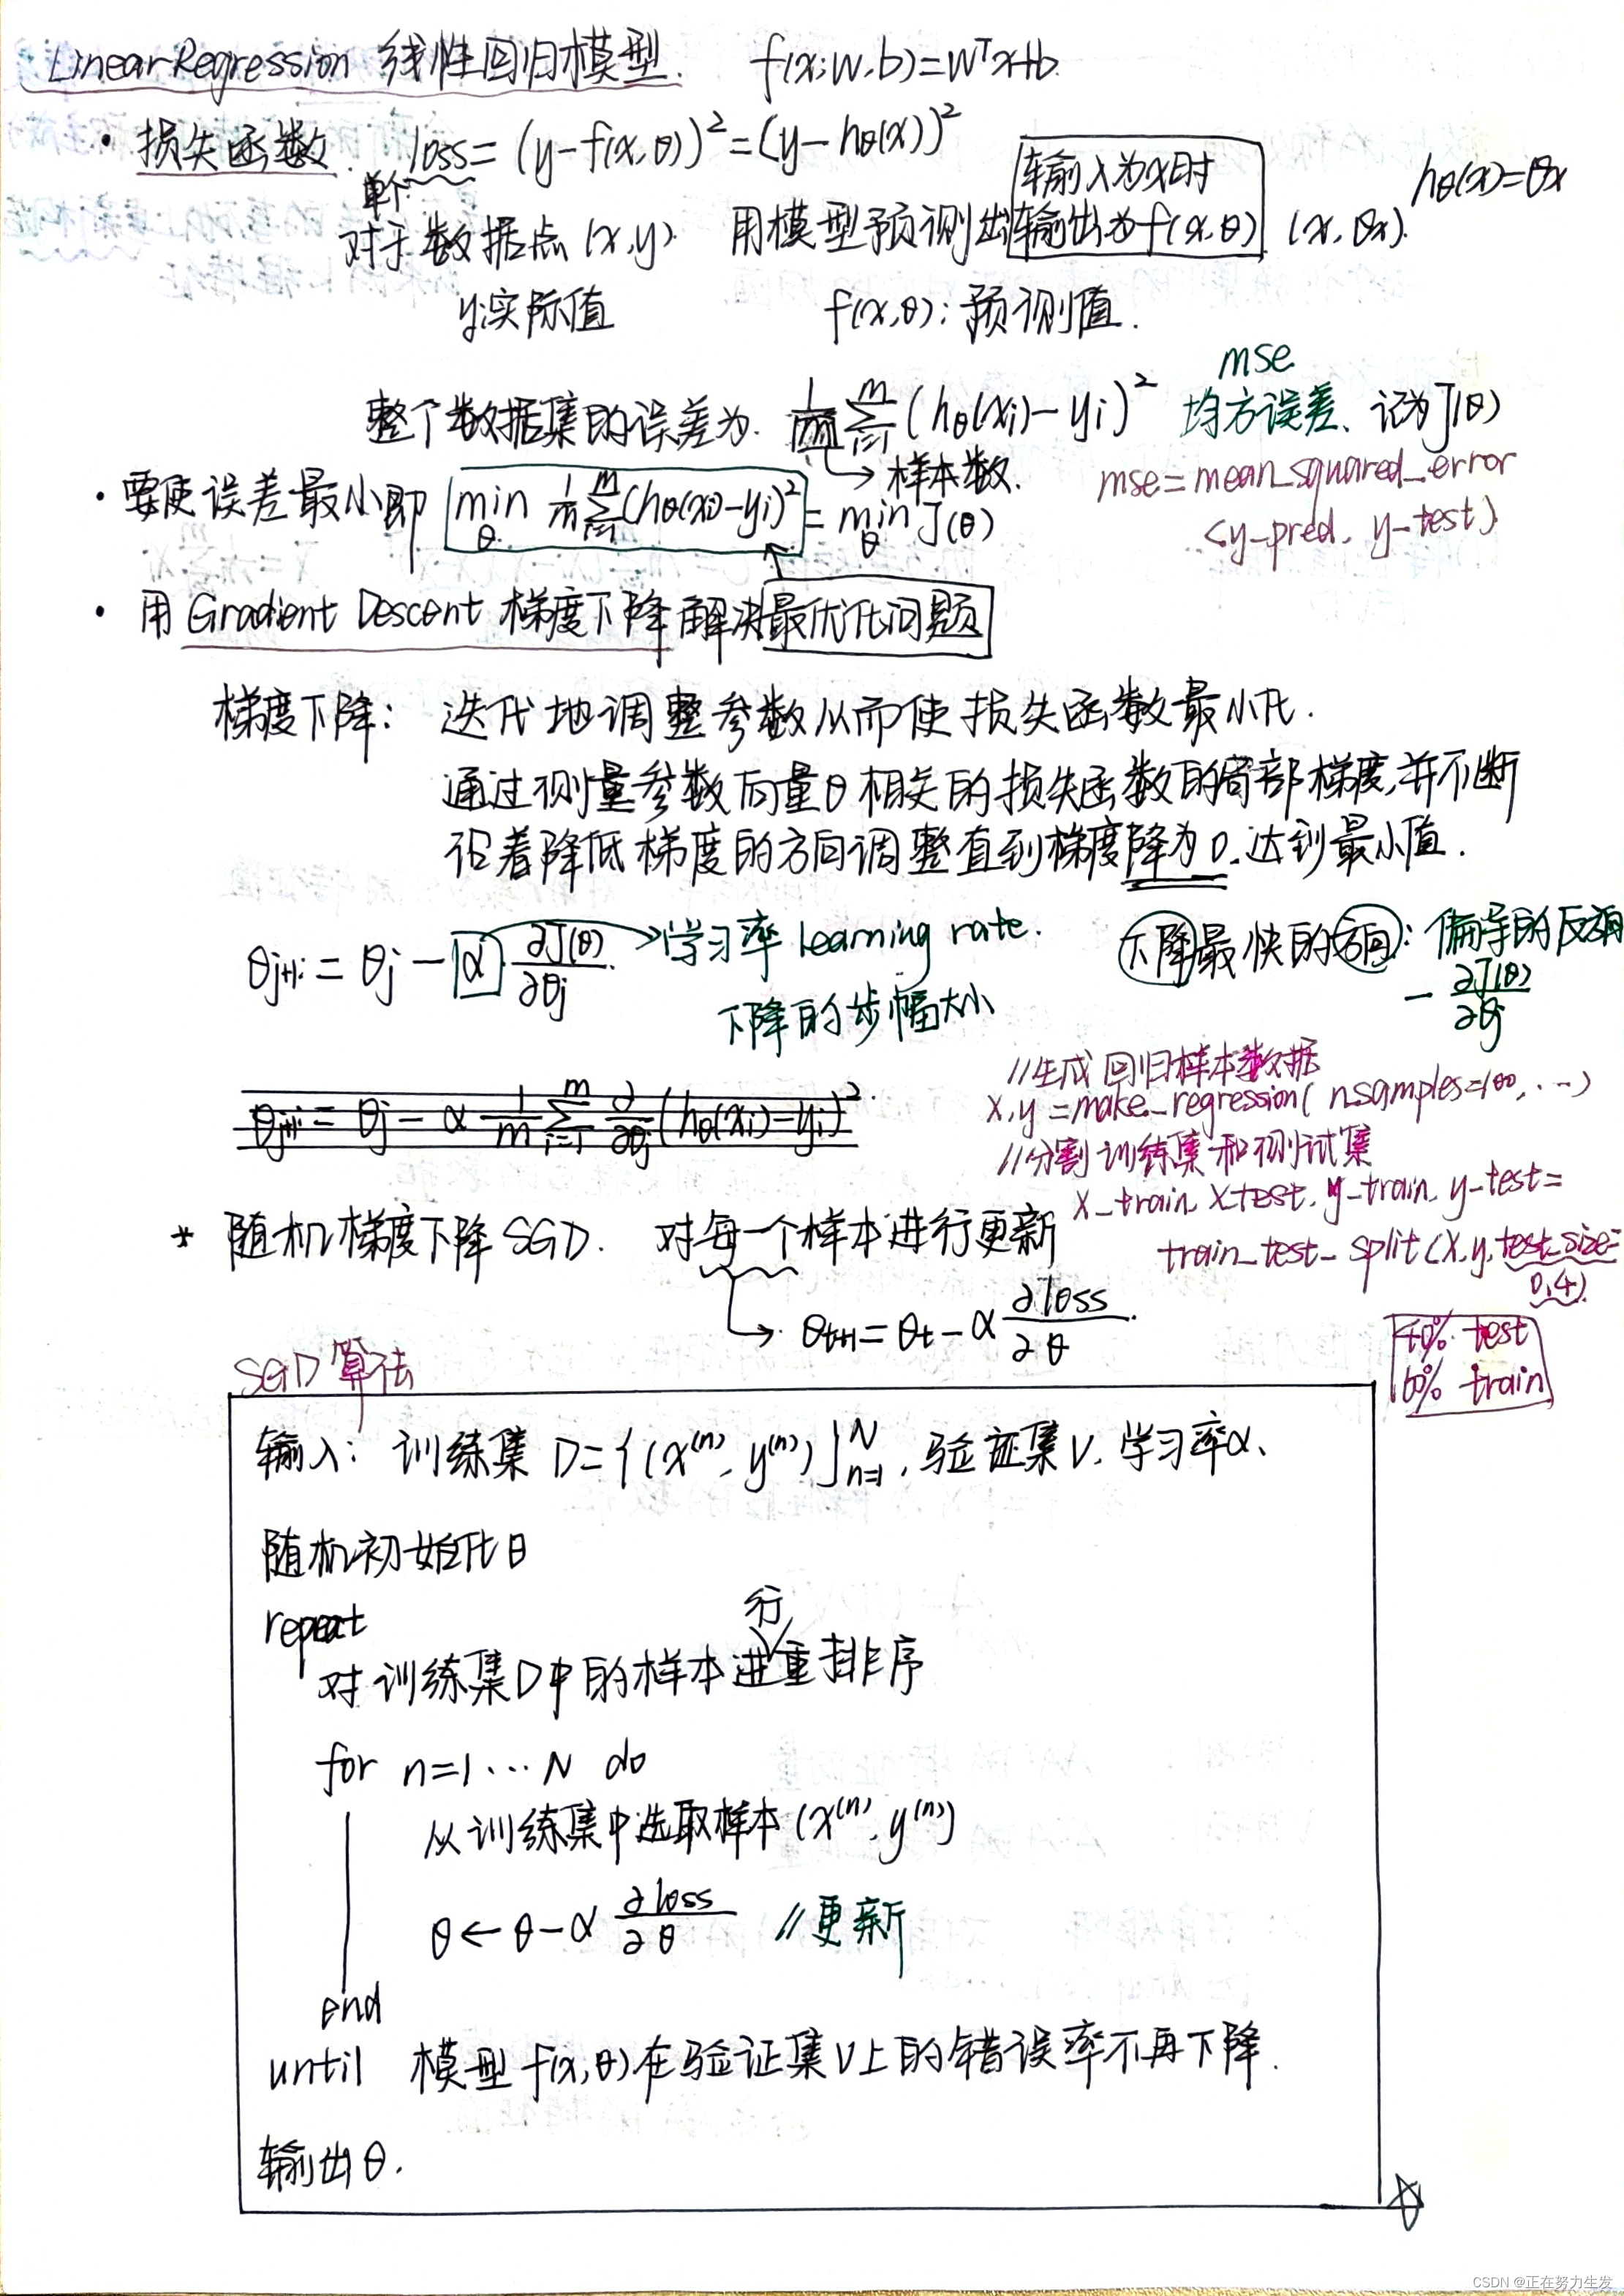 Linear Regression 线性回归模型. f(x;w,b)=wᵀx+b
· 损失函数. loss=(y-f(x,θ))²=(y-hθ(x))²
单个
输入为x时
hθ(x)=θx
对于数据点(x,y). 用模型预测出输出为f(x,θ) (x,θx).
y:实际值 f(x,θ):预测值.
mse
整个数据集的误差为. 1/m Σᵢ₌₁ᵐ(hθ(xi)-yi)² 均方误差、记为J(θ)
→样本数.
mse=mean_squared_error
(y-pred, y-test)
· 要使误差最小即 min θ 1/m Σᵢ₌₁ᵐ(hθ(xi)-yi)² = min θ J(θ)
· 用 Gradient Descent 梯度下降解决最优化问题
梯度下降: 迭代地调整参数从而使损失函数最小化.
通过测量参数向量θ相关的损失函数的局部梯度,并不断
沿着降低梯度的方向调整直到梯度降为0.达到最小值.
θj+1=θj-α ∂J(θ)/∂θj →学习率 learning rate.
下降的步幅大小
下降最快的方向: 偏导的反方向
-∂J(θ)/∂θj
θj+1=θj-α 1/m Σᵢ₌₁ᵐ ∂/∂θj(hθ(xi)-yi)².
//生成回归样本数据
x,y=make_regression(n_samples=100,...)
//分割训练集和测试集
x_train, x_test, y_train, y_test=
train_test_split(x,y,test_size=
0.4)
40% test
60% train
* 随机梯度下降SGD. 对每一个样本进行更新
→ θt+1=θt-α ∂loss/∂θ.
SGD算法
输入: 训练集 D={(x⁽ⁿ⁾,y⁽ⁿ⁾)}ₙ₌₁ᴺ, 验证集V, 学习率α、
随机初始化θ
repeat
行
对训练集D中的样本进重排序
for n=1...N do
从训练集中选取样本(x⁽ⁿ⁾,y⁽ⁿ⁾)
θ←θ-α ∂loss/∂θ //更新
end
until 模型f(x,θ)在验证集V上的错误率不再下降.
输出θ.
CSDN @正在努力生发